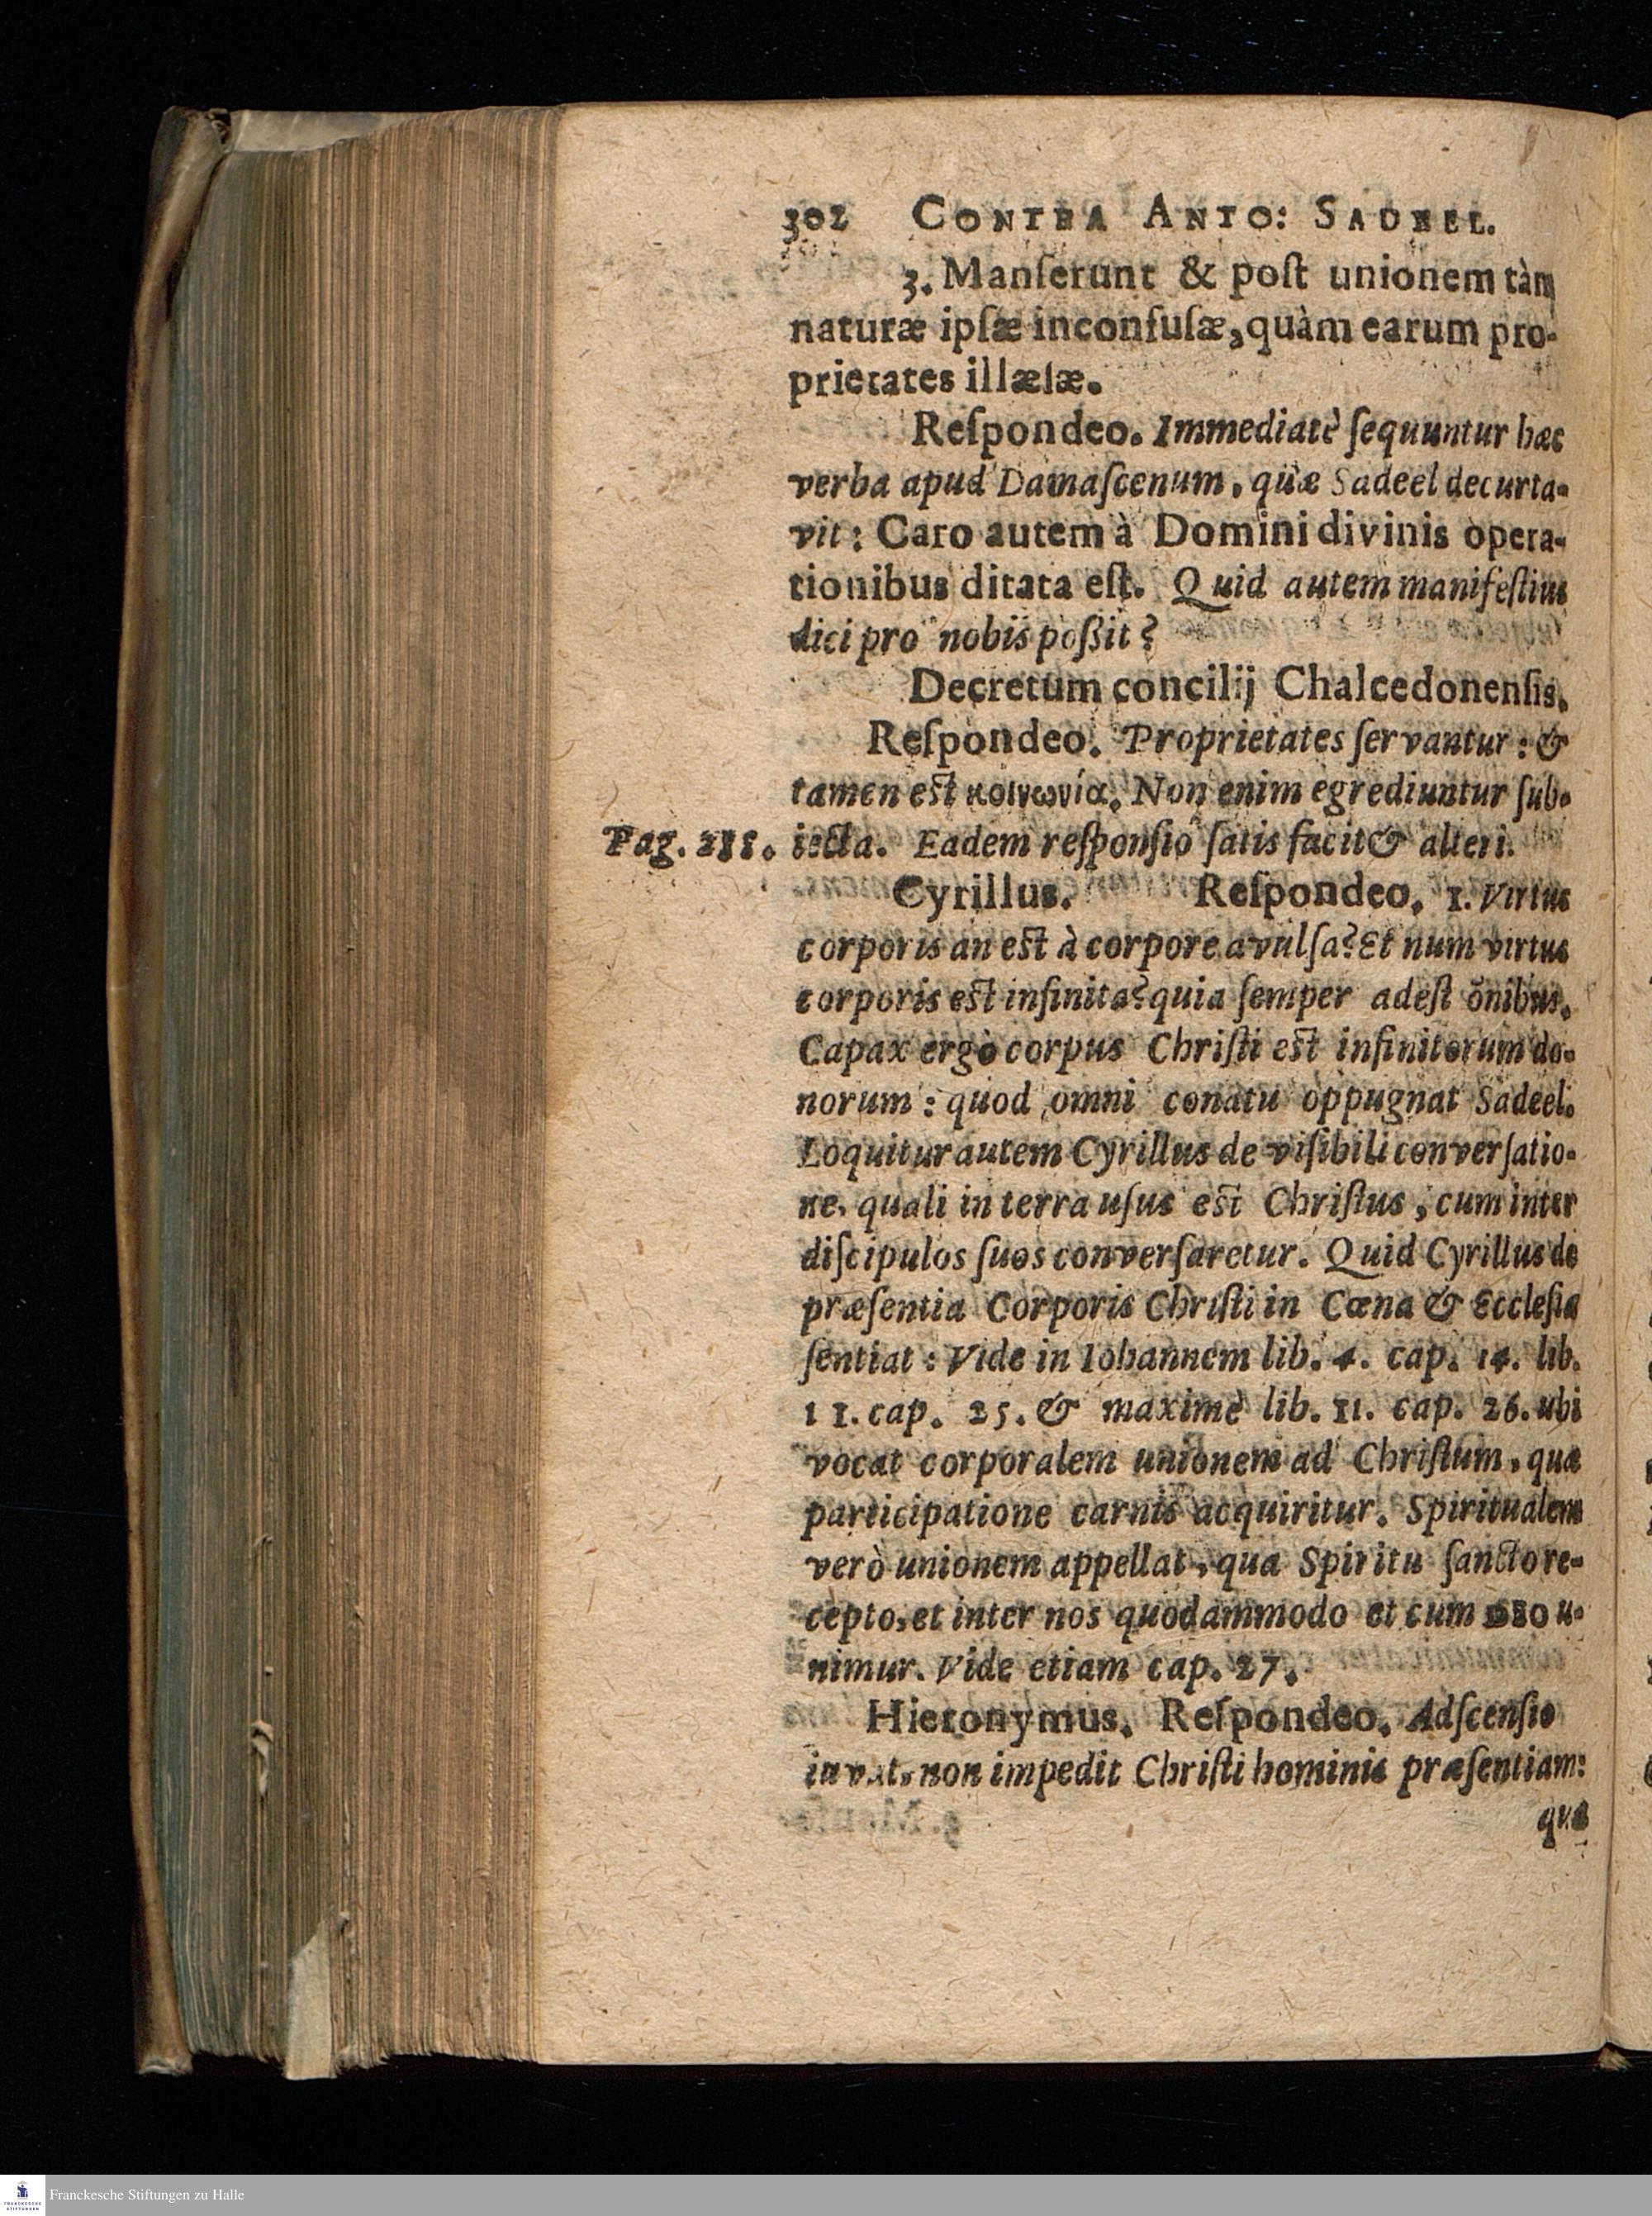 302 CONTRA ANTO: SADEEL.
3. Manſerunt & poſt unionem tàm
naturæ ipſæ inconfuſæ, quàm earum pro-
prietates illæſæ.
Reſpondeo. Immediatè ſequuntur hæc
verba apud Damaſcenum, quæ Sadeel decurta-
vit: Caro autem à Domini divinis opera-
tionibus ditata eſt. Quid autem manifeſtius
dici pro nobis poßit?
Decretum concilij Chalcedonenſis.
Reſpondeo. Proprietates ſervantur: &
tamen eſt κοινωνία. Non enim egrediuntur ſub-
Pag. 288. iecta. Eadem reſponſio ſatis facit & alteri.
Cyrillus. Reſpondeo. 1. Virtus
corporis an eſt à corpore avulſa? Et num virtus
corporis eſt infinita? quia ſemper adeſt õnibus.
Capax ergò corpus Chriſti eſt infinitorum do-
norum: quod omni conatu oppugnat Sadeel.
Loquitur autem Cyrillus de viſibili converſatio-
ne, quali in terra uſus eſt Chriſtus, cum inter
diſcipulos ſuos converſaretur. Quid Cyrillus de
præſentia Corporis Chriſti in Cœna & Eccleſia
ſentiat: Vide in Iohannem lib. 4. cap. 14. lib.
11. cap. 25. & maximè lib. 11. cap. 26. ubi
vocat corporalem unionem ad Chriſtum, quæ
participatione carnis acquiritur. Spiritualem
verò unionem appellat, qua Spiritu ſancto re-
cepto, et inter nos quodammodo et cum DEO u-
nimur. Vide etiam cap. 27.
Hieronymus. Reſpondeo. Adſcenſio
iuvat, non impedit Chriſti hominis præſentiam:
quæ
Franckesche Stiftungen zu Halle